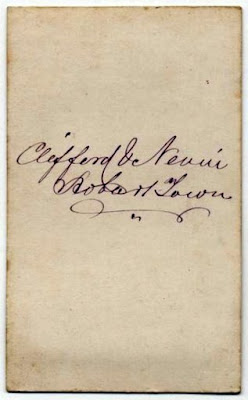 Clifford & Nevin
Hobart Town